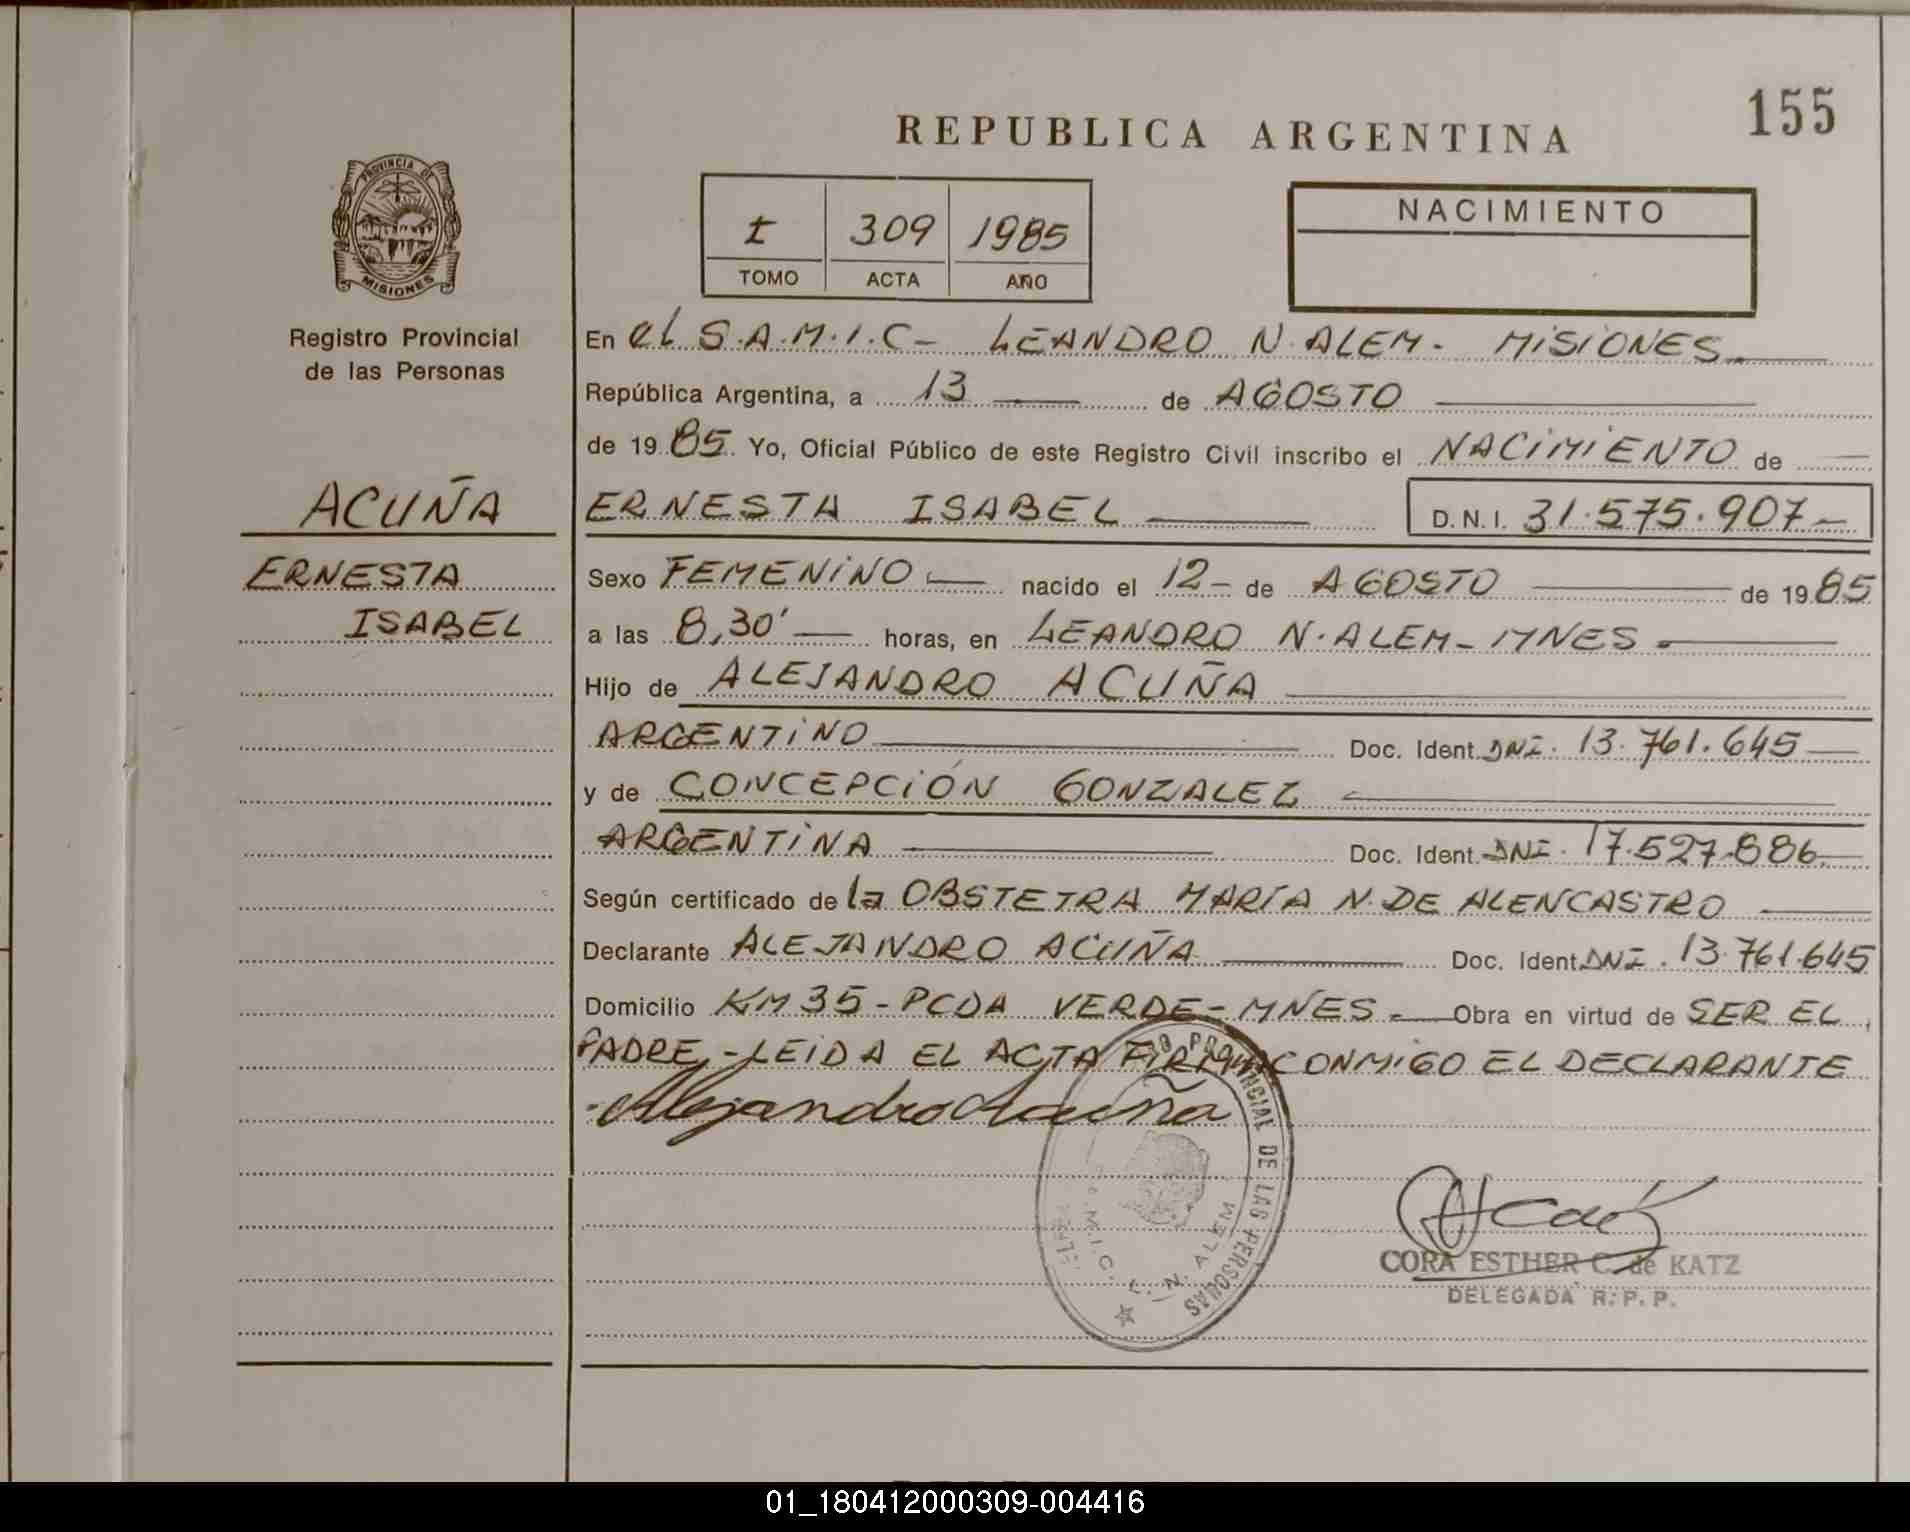 155
REPUBLICA ARGENTINA
PROVINCIA DE
MISIONES
Registro Provincial
de las Personas
I 309 1985
TOMO ACTA AÑO
NACIMIENTO
En el S.A.M.I.C- LEANDRO N. ALEM- MISIONES
República Argentina, a 13 de AGOSTO
de 1985. Yo, Oficial Público de este Registro Civil inscribo el NACIMIENTO de
ACUÑA
ERNESTA ISABEL
D.N.I. 31.575.907-
ERNESTA
ISABEL
Sexo FEMENINO nacido el 12- de AGOSTO de 1985
a las 8,30' horas, en LEANDRO N. ALEM-MNES
Hijo de ALEJANDRO ACUÑA
ARGENTINO Doc. Ident. DNI. 13.761.645
y de CONCEPCIÓN GONZALEZ
ARGENTINA Doc. Ident. DNI. 17.527.886
Según certificado de la OBSTETRA MARÍA N. DE ALENCASTRO
Declarante ALEJANDRO ACUÑA Doc. Ident. DNI. 13.761.645
Domicilio KM 35-PCDA VERDE-MNES. Obra en virtud de SER EL
PADRE,-LEIDA EL ACTA FIRMA CONMIGO EL DECLARANTE
Alejandro Acuña
PROVINCIAL DE LAS PERSONAS
S.A.M.I.C. L. N. ALEM
CORA ESTHER C. de KATZ
DELEGADA R. P. P.
01_180412000309-004416